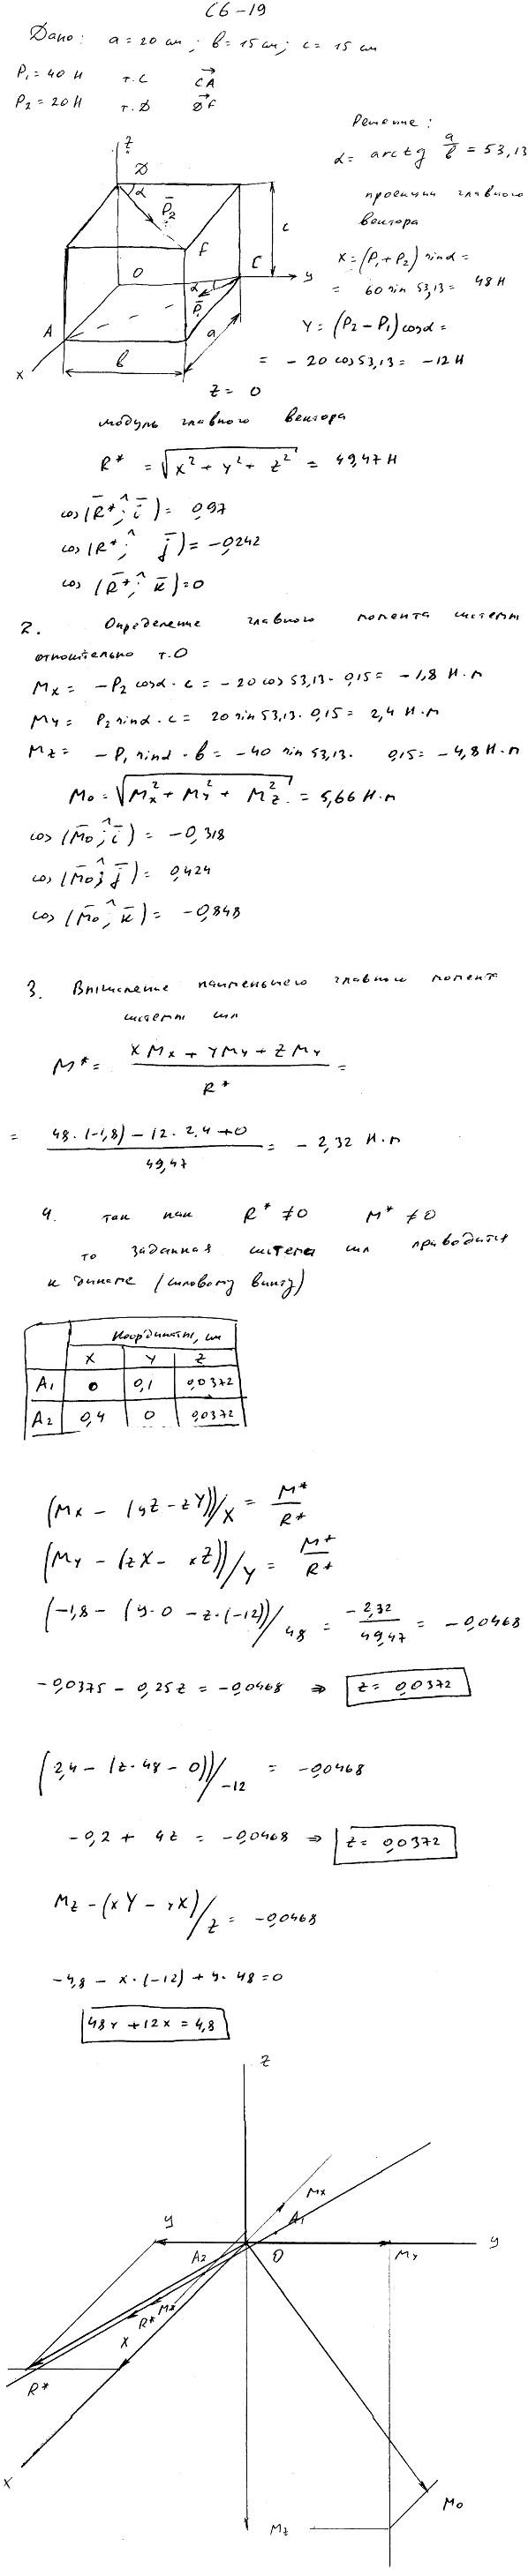 С6-19
Дано: a = 20 см; b = 15 см; c = 15 см
P₁ = 40 Н т.C CA
P₂ = 20 Н т.D DF
Решение:
α = arctg a/b = 53,13
проекции главного
вектора
X = (P₁+P₂) sinα =
= 60 sin 53,13 = 48 Н
Y = (P₂ - P₁) cosα =
= - 20 cos 53,13 = -12 Н
Z = 0
z
D
α
P₂
F
c
O
C
y
α
P₁
A
a
x
b
модуль главного вектора
R* = √(X² + Y² + Z²) = 49,47 Н
cos (R*; i) = 0,97
cos (R*; j) = -0,242
cos (R*; k) = 0
2. Определение главного момента системы
относительно т.O
Mx = -P₂ cosα · c = -20 cos 53,13 · 0,15 = -1,8 Н·м
My = P₂ sinα · c = 20 sin 53,13 · 0,15 = 2,4 Н·м
Mz = -P₁ sinα · b = -40 sin 53,13 · 0,15 = -4,8 Н·м
M₀ = √(Mx² + My² + Mz²) = 5,66 Н·м
cos (M₀; i) = -0,318
cos (M₀; j) = 0,424
cos (M₀; k) = -0,848
3. Вычисление наименьшего главного момента
системы сил
M* = (X Mx + Y My + Z My) / R* =
= (48·(-1,8) - 12·2,4 + 0) / 49,47 = - 2,32 Н·м
4. так как R* ≠ 0 M* ≠ 0
то заданная система сил приводится
к динаме (силовому винту)
Координаты, см
X Y Z
A₁ 0 0,1 0,0372
A₂ 0,4 0 0,0372
(Mx - (yZ - zY))/X = M*/R*
(My - (zX - xZ))/Y = M*/R*
(-1,8 - (y·0 - z·(-12)))/48 = -2,32/49,47 = -0,0468
-0,0375 - 0,25z = -0,0468 ⇒ z = 0,0372
(2,4 - (z·48 - 0))/-12 = -0,0468
-0,2 + 4z = -0,0468 ⇒ z = 0,0372
Mz - (xY - yX)/Z = -0,0468
-4,8 - x·(-12) + y·48 = 0
48y + 12x = 4,8
z
Mx
A₁
y
A₂
O
My
y
M*
R*
X
R*
x
M₀
Mz